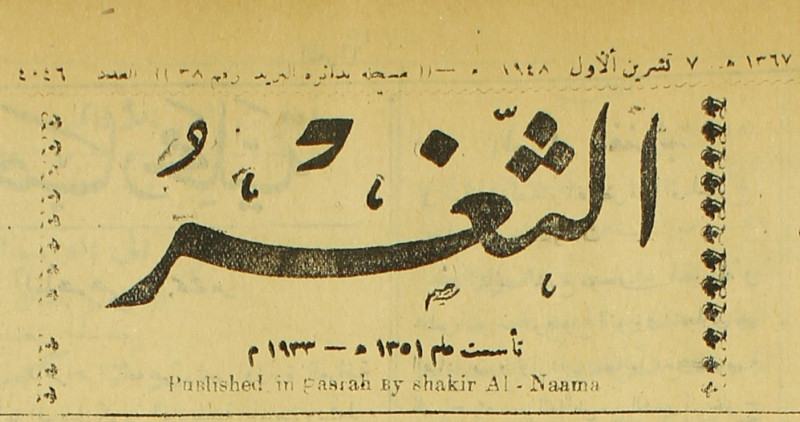 ١٣٦٧ هـ ٧ تشرين ألاول ١٩٤٨ م —(( مسجلة بدائرة البريد رقم ٣٨ )) العدد ٤٠٤٦
الثغر
تأسست عام ١٣٥١ ه — ١٩٣٣ م
Published in Basrah By shakir Al - Naama